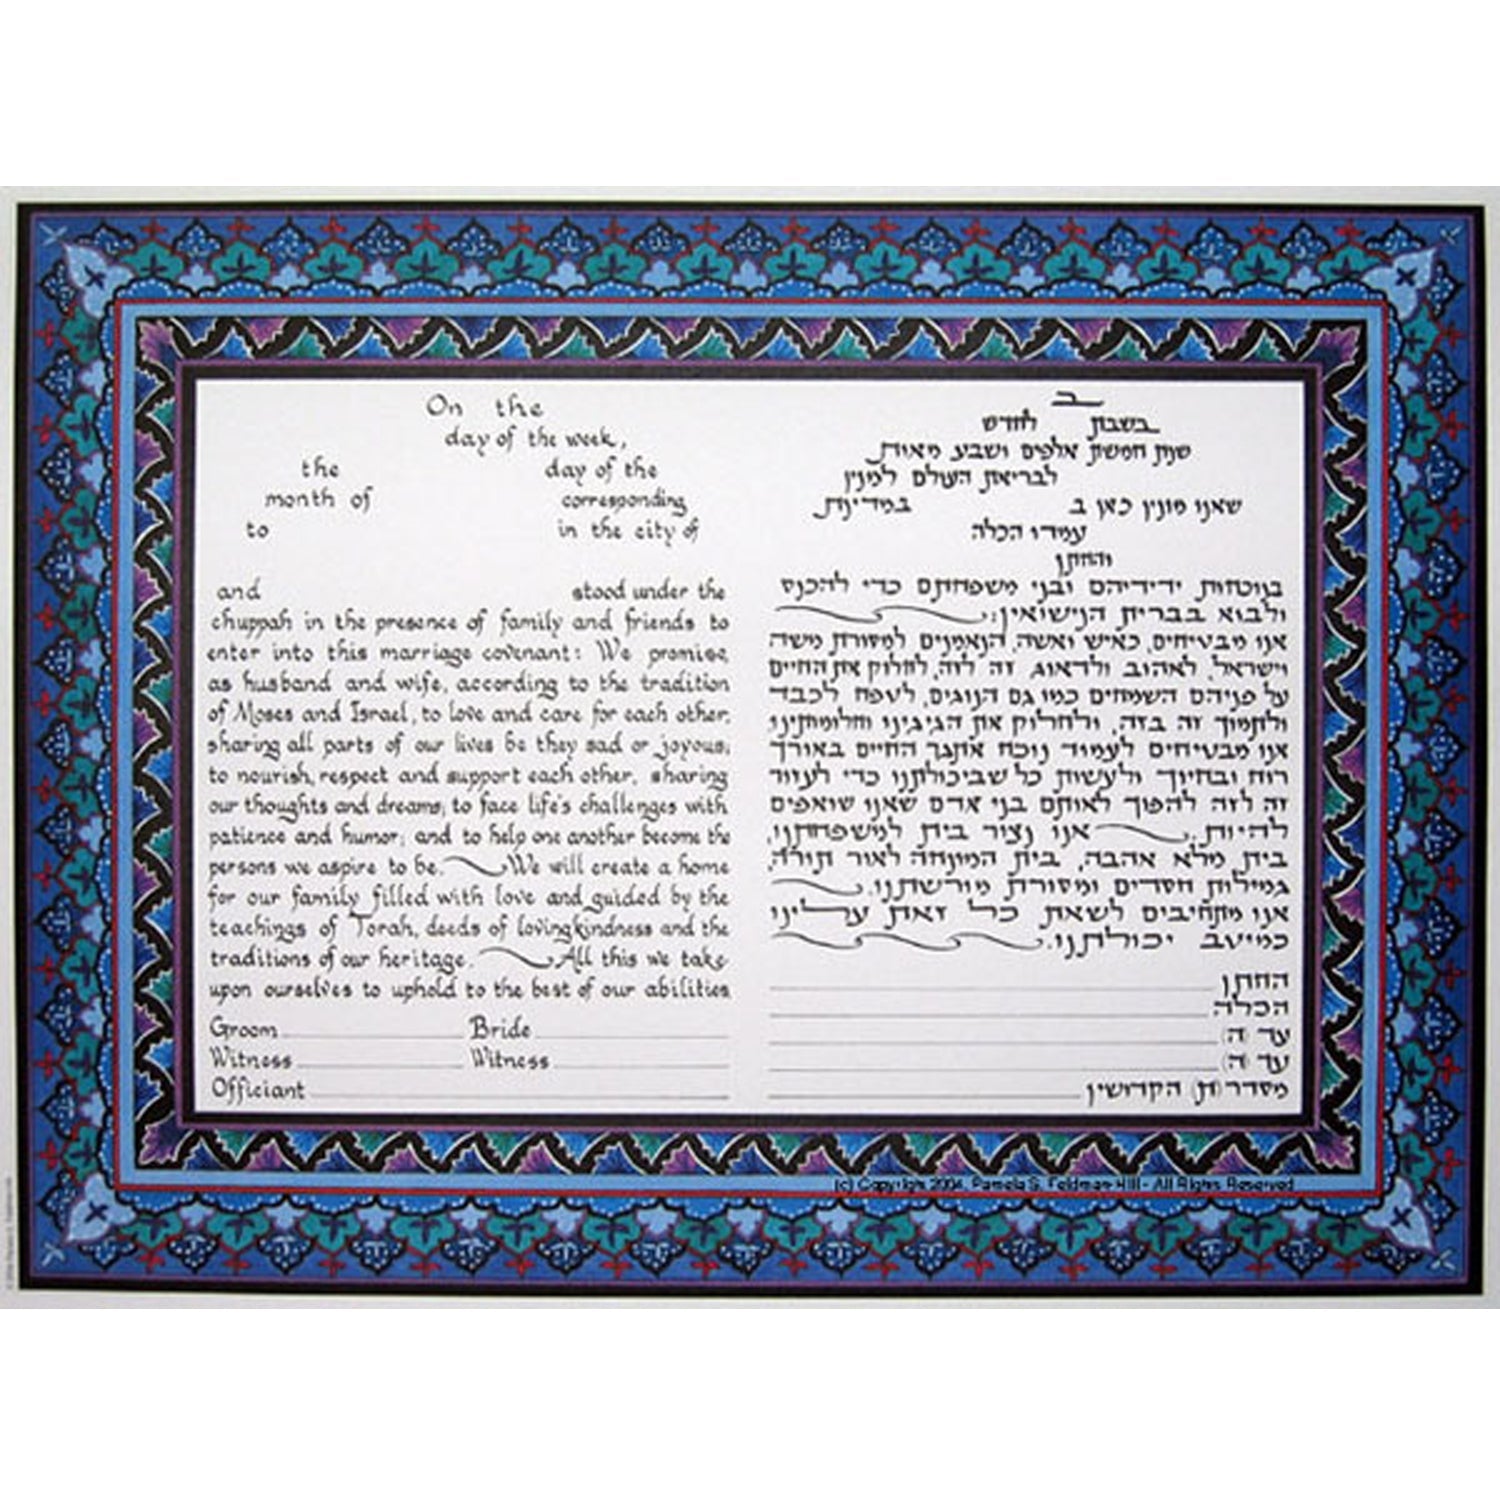 On the
day of the week,
the day of the
month of corresponding
to in the city of
and stood under the
chuppah in the presence of family and friends to
enter into this marriage covenant: We promise,
as husband and wife, according to the tradition
of Moses and Israel, to love and care for each other;
sharing all parts of our lives be they sad or joyous;
to nourish, respect and support each other, sharing
our thoughts and dreams; to face life's challenges with
patience and humor; and to help one another become the
persons we aspire to be. We will create a home
for our family filled with love and guided by the
teachings of Torah, deeds of lovingkindness and the
traditions of our heritage. All this we take
upon ourselves to uphold to the best of our abilities.
Groom Bride
Witness Witness
Officiant
ב
בשבת לחדש
שנת חמשת אלפים ושבע מאות
לבריאת העולם למנין
שאנו מונין כאן ב במדינת
עמדו הכלה
והחתן
בנוכחות ידידיהם ובני משפחתם כדי להכנס
ולבוא בברית הנישואין:
אנו מבטיחים, כאיש ואשה, הנאמנים למסורת משה
וישראל, לאהוב ולדאוג זה לזה, לחלוק את החיים
על פניהם השמחים כמו גם הנוגים, לטפח לכבד
ולתמוך זה בזה, ולחלוק את הגיגינו וחלומותינו.
אנו מבטיחים לעמוד נוכח אתגר החיים באורך
רוח ובחיוך ולעשות כל שביכולתנו כדי לעזור
זה לזה להפוך לאותם בני אדם שאנו שואפים
להיות. אנו ניצור בית למשפחתנו,
בית מלא אהבה, בית המונחה לאור תורה,
גמילות חסדים ומסורת מורשתנו.
אנו מתחיבים לשאת כל זאת עלינו
כמיטב יכולתנו.
החתן
הכלה
עד (ה)
עד (ה)
מסדר(ת) הקדושין
(c) Copyright 2004, Pamela S. Feldman-Hill - All Rights Reserved